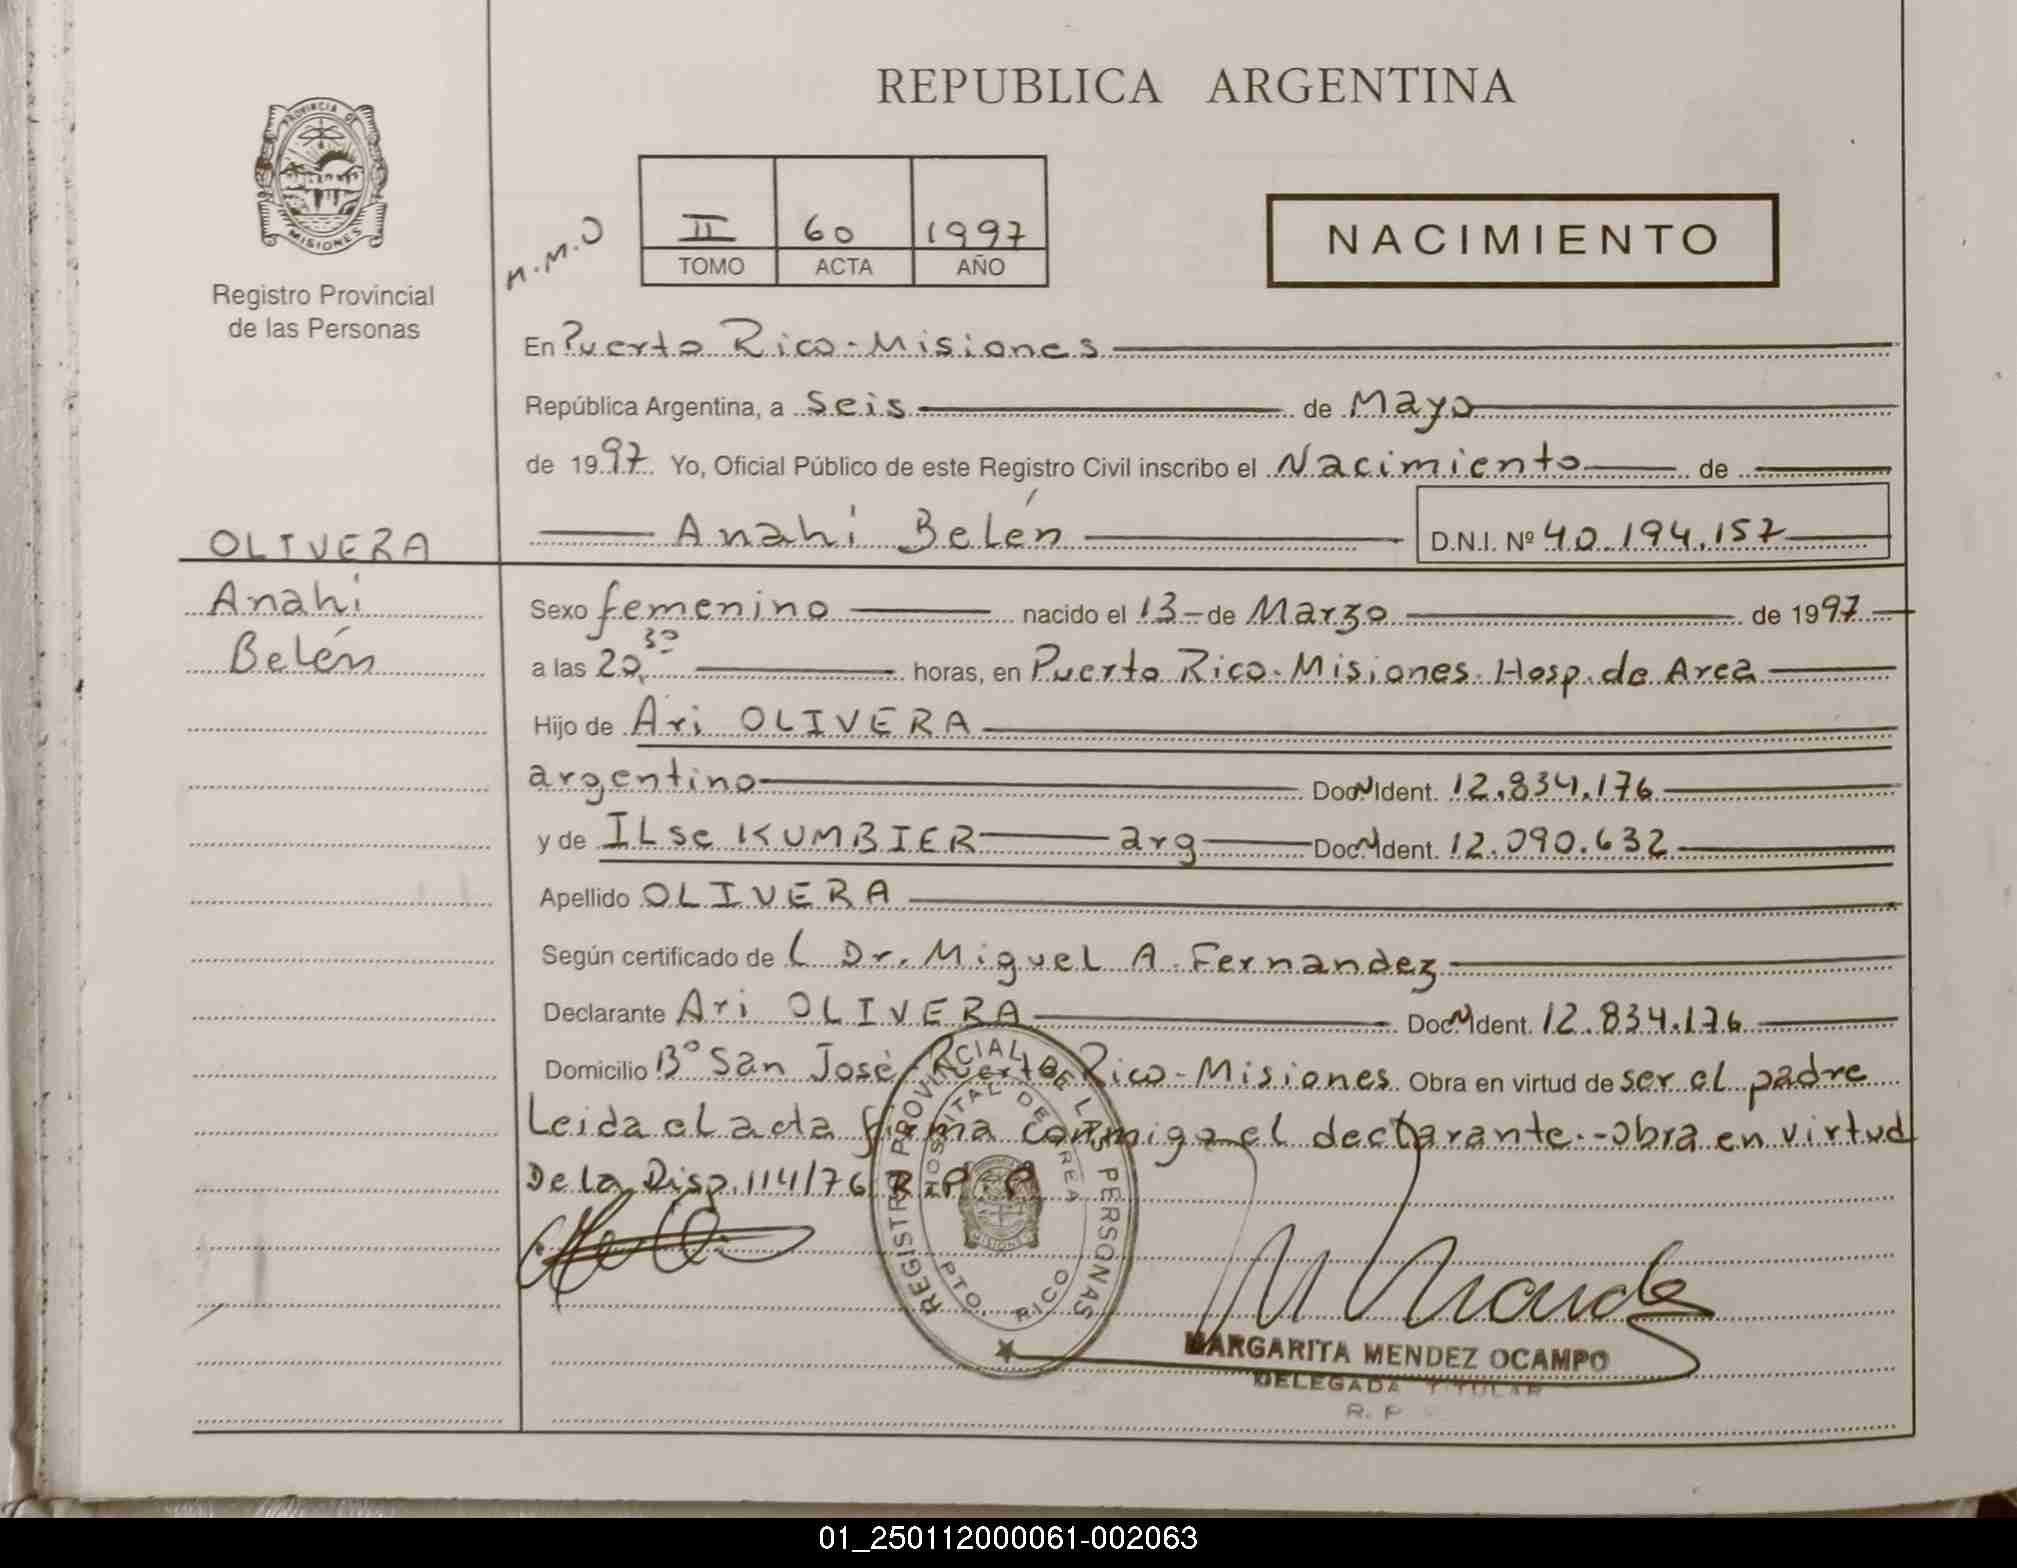 REPUBLICA ARGENTINA
PROVINCIA DE
MISIONES
Registro Provincial
de las Personas
M.M.O
II 60 1997
TOMO ACTA AÑO
NACIMIENTO
En Puerto Rico - Misiones
República Argentina, a seis de Mayo
de 1997 Yo, Oficial Público de este Registro Civil inscribo el Nacimiento de
Anahi Belén D.N.I. Nº 40.194.157
OLIVERA
Anahi
Belén
Sexo femenino nacido el 13 de Marzo de 1997
a las 20,30 horas, en Puerto Rico. Misiones. Hosp. de Area
Hijo de Ari OLIVERA
argentino Doc N Ident. 12.834.176
y de ILse KUMBIER arg Doc N Ident. 12.090.632
Apellido OLIVERA
Según certificado de L Dr. Miguel A. Fernandez
Declarante Ari OLIVERA Doc N Ident. 12.834.176
Domicilio Bº San José Puerto Rico - Misiones Obra en virtud de ser el padre
Leida el acta firma conmigo el declarante.- Obra en virtud
De la Disp. 114/76 R P P
REGISTRO PROVINCIAL DE LAS PERSONAS
HOSPITAL DE AREA
PTO. RICO
MISIONES
MARGARITA MENDEZ OCAMPO
DELEGADA TITULAR
R. P
01_250112000061-002063